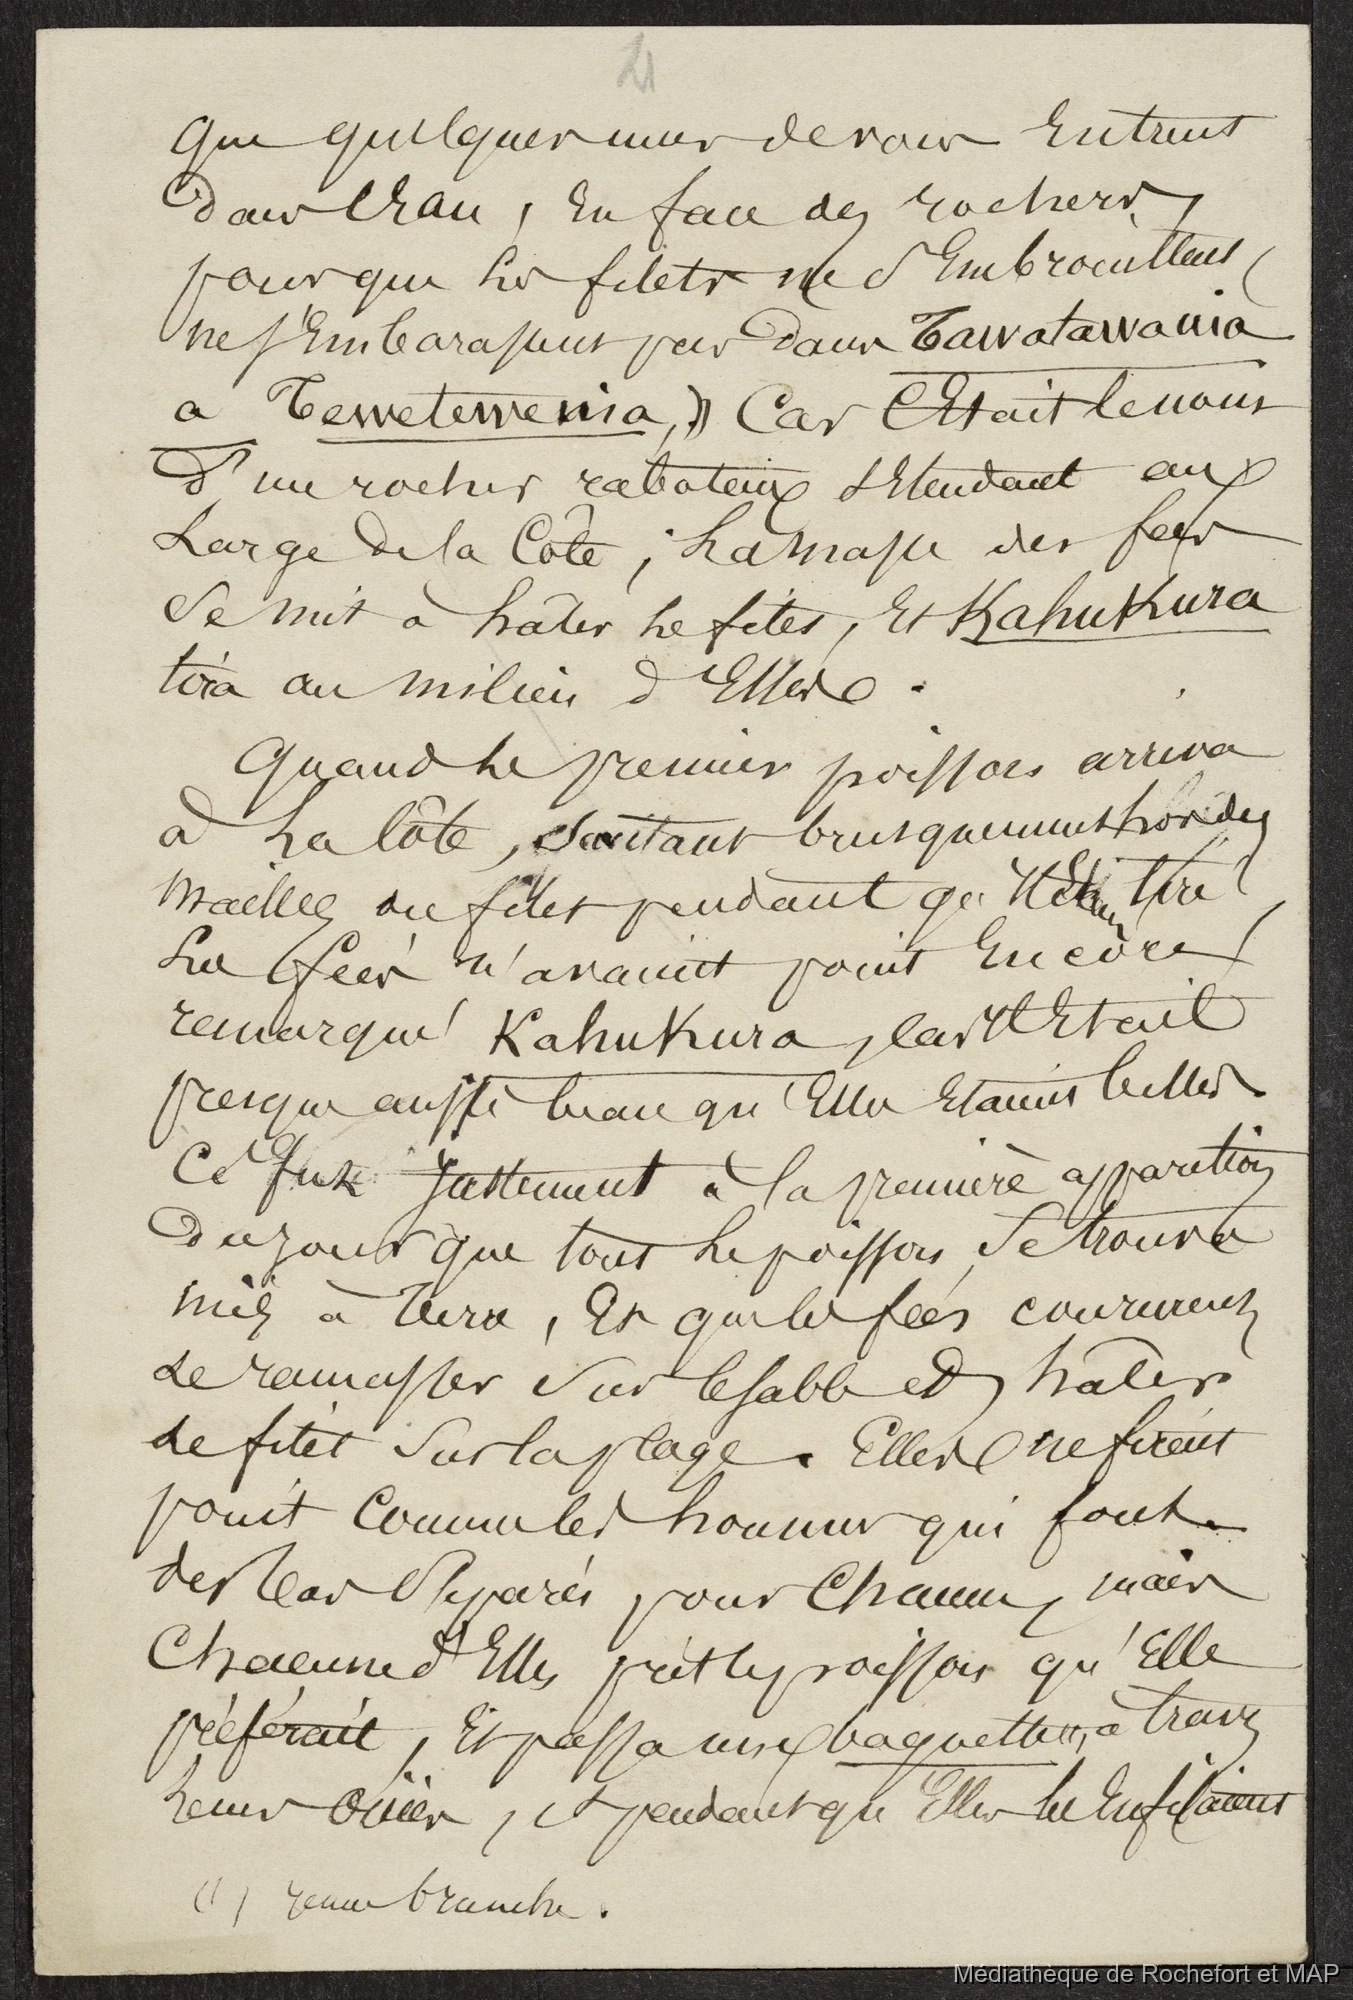 21
que quelques uns de vous Entrent
dans l'Eau, En face des rochers,
pour que les filets ne s'Embrouillent,
ne s'Embarassent pas dans Tawatawauia
a Tewetewenia, » Car C'Etait le nom
d'un rocher raboteux s'Etendant au
Large de la Côte ; La masse des fées
se mit à hâler le filet, Et Kahukura
tira au milieu d'Elles.
Quand le premier poisson arriva
à La Côte, sautant brusquement hors des
mailles du filet pendant qu'il Etait tiré,
Les fées n'avaient point Encore
remarqué Kahukura, car il Etait
presque aussi beau qu'Elles Etaient belles.
Ce fut justement à la première apparition
du jour que tout le poisson se trouva
mis à terre, Et que les fées coururent
le ramasser sur le sable et hâler
le filet sur la plage. Elles ne firent
point Comme les hommes qui font
des tas séparés pour Chacun, mais
Chacune d'Elles prit les poissons qu'Elle
préférait, Et passa une baguette (1), à travers
leurs ouïes, et pendant qu'Elles les Enfilaient
(1) jeune branche.
Médiathèque de Rochefort et MAP